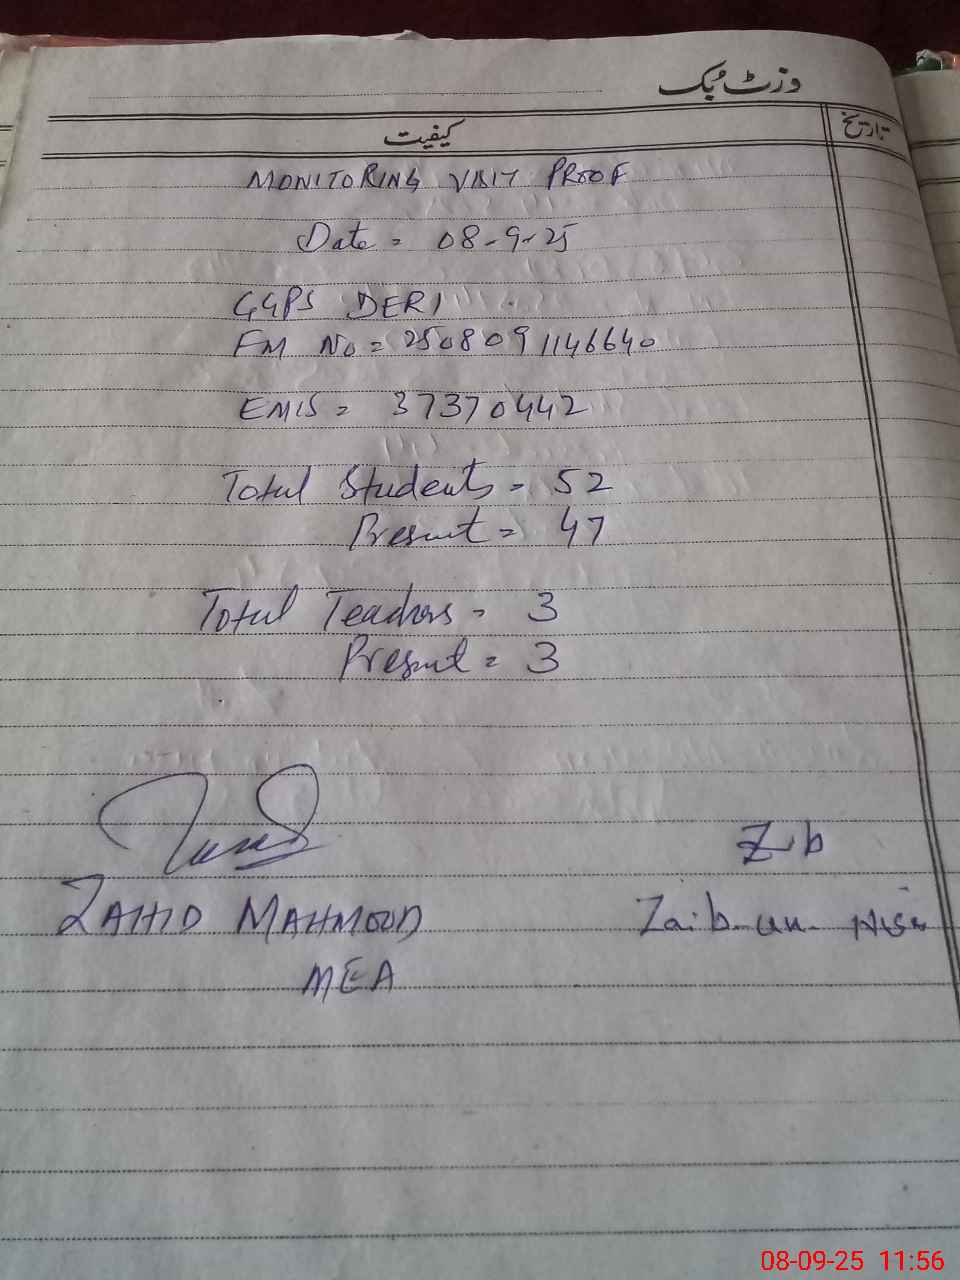 وزٹ بُک
کیفیت
تاریخ
MONITORING VISIT PROOF
Date = 08-9-25
GGPS DERI
FM No = 2508091146640
EMIS = 37370442
Total Students = 52
Present = 47
Total Teachers = 3
Present = 3
Zb
ZAHID MAHMOOD
Zaib-un-Nisa
MEA
08-09-25 11:56